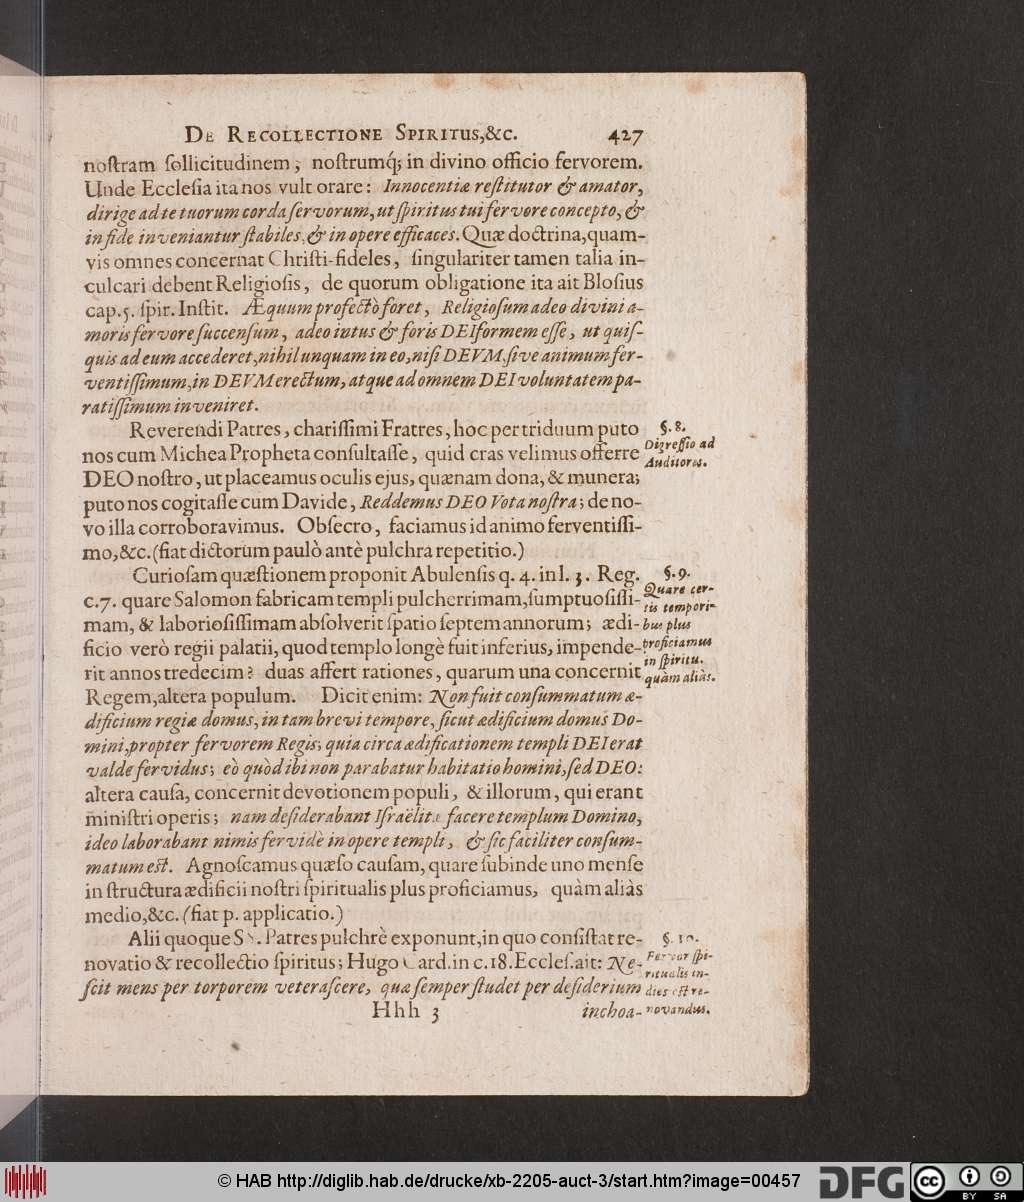 DE RECOLLECTIONE SPIRITUS,&c. 427
noſtram ſollicitudinem, noſtrumq́; in divino officio fervorem.
Unde Eccleſia ita nos vult orare: Innocentiæ reſtitutor & amator,
dirige ad te tuorum corda ſervorum, ut ſpiritus tui fervore concepto, &
in fide inveniantur ſtabiles, & in opere efficaces. Quæ doctrina, quam-
vis omnes concernat Chriſti-fideles, ſingulariter tamen talia in-
culcari debent Religioſis, de quorum obligatione ita ait Bloſius
cap.5. ſpir. Inſtit. Æquum profectò foret, Religioſum adeo divini a-
moris fervore ſuccenſum, adeo intus & foris DEIformem eſſe, ut quiſ-
quis ad eum accederet, nihil unquam in eo, niſi DEVM, ſive animum fer-
ventiſſimum, in DEVM erectum, atque ad omnem DEI voluntatem pa-
ratiſſimum inveniret.
Reverendi Patres, chariſſimi Fratres, hoc per triduum puto
nos cum Michea Propheta conſultaſſe, quid cras velimus offerre
DEO noſtro, ut placeamus oculis ejus, quænam dona, & munera;
puto nos cogitaſſe cum Davide, Reddemus DEO Vota noſtra; de no-
vo illa corroboravimus. Obſecro, faciamus id animo ferventiſſi-
mo, &c. (fiat dictorum paulò antè pulchra repetitio.)
§. 8.
Digreſſio ad
Auditores.
Curioſam quæſtionem proponit Abulenſis q. 4. in l. 3. Reg.
c.7. quare Salomon fabricam templi pulcherrimam, ſumptuoſiſſi-
mam, & laborioſiſſimam abſolverit ſpatio ſeptem annorum; ædi-
ficio verò regii palatii, quod templo longè fuit inferius, impende-
rit annos tredecim? duas affert rationes, quarum una concernit
Regem, altera populum. Dicit enim: Non fuit conſummatum æ-
dificium regiæ domus, in tam brevi tempore, ſicut ædificium domus Do-
mini, propter fervorem Regis; quia circa ædificationem templi DEI erat
valde fervidus; eò quòd ibi non parabatur habitatio homini, ſed DEO:
altera cauſa, concernit devotionem populi, & illorum, qui erant
miniſtri operis; nam deſiderabant Iſraëlitæ facere templum Domino,
ideo laborabant nimis fervidè in opere templi, & ſic faciliter conſum-
matum eſt. Agnoſcamus quæſo cauſam, quare ſubinde uno menſe
in ſtructura ædificii noſtri ſpiritualis plus proficiamus, quàm aliàs
medio, &c. (fiat p. applicatio.)
§. 9.
Quare cer-
tis tempori-
bus plus
proficiamus
in ſpiritu.
quàm aliàs.
Alii quoque SS. Patres pulchrè exponunt, in quo conſiſtat re-
novatio & recollectio ſpiritus; Hugo Card. in c.18. Eccleſ. ait: Ne-
ſcit mens per torporem veteraſcere, quæ ſemper ſtudet per deſiderium
§. 10.
Fervor ſpi-
ritualis in-
dies eſt re-
novandus.
Hhh 3 inchoa-
© HAB http://diglib.hab.de/drucke/xb-2205-auct-3/start.htm?image=00457
DFG
cc
BY SA